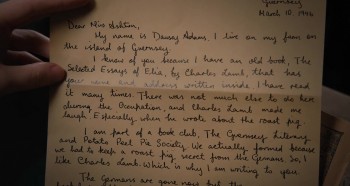 Guernsey
March 10, 1946
Dear Miss Ashton,
My name is Dawsey Adams. I live on my farm on
the island of Guernsey.
I know of you because I have an old book, The
Selected Essays of Elia, by Charles Lamb, that has
your name and address written inside. I have read
it many times. There was not much else to do here
during the Occupation, and Charles Lamb made me
laugh. Especially when he wrote about the roast pig.
I am part of a book club, The Guernsey Literary
and Potato Peel Pie Society. We actually formed because
we had to keep a roast pig secret from the Germans. So, I
like Charles Lamb. Which is why I am writing to you
The Germans are gone now but the